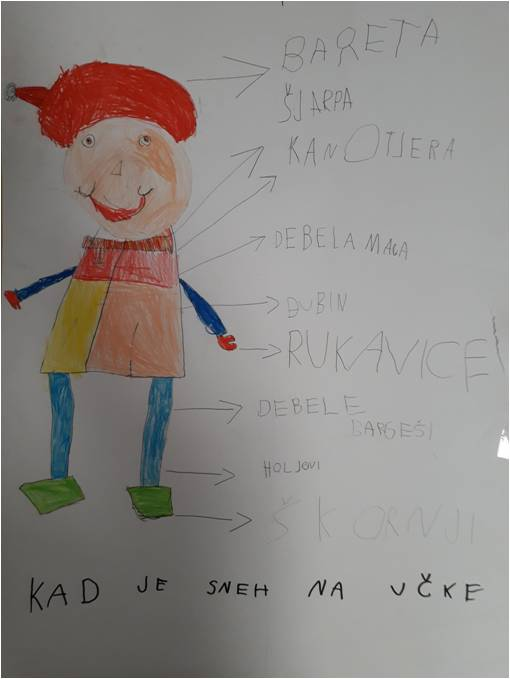 BARETA
ŠJARPA
KANOTJERA
DEBELA MAGA
ĐUBIN
RUKAVICE
DEBELE
BARGEŠI
HOLJOVI
ŠKORNJI
KAD JE SNEH NA UČKE